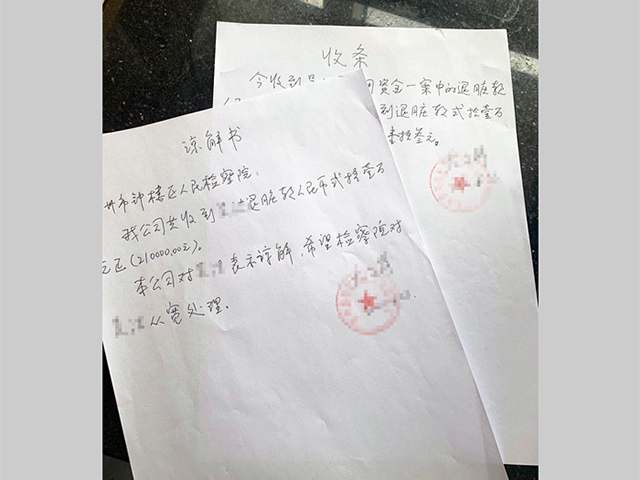 收条
今收到 用资金一案中的退脏款
到退脏款弍拾壹万
拾叁元。
谅解书
州市钟楼区人民检察院:
我公司共收到 退脏款人民币弍拾壹万
元正(210000.00元).
本公司对 表示谅解,希望检察院对
从宽处理.